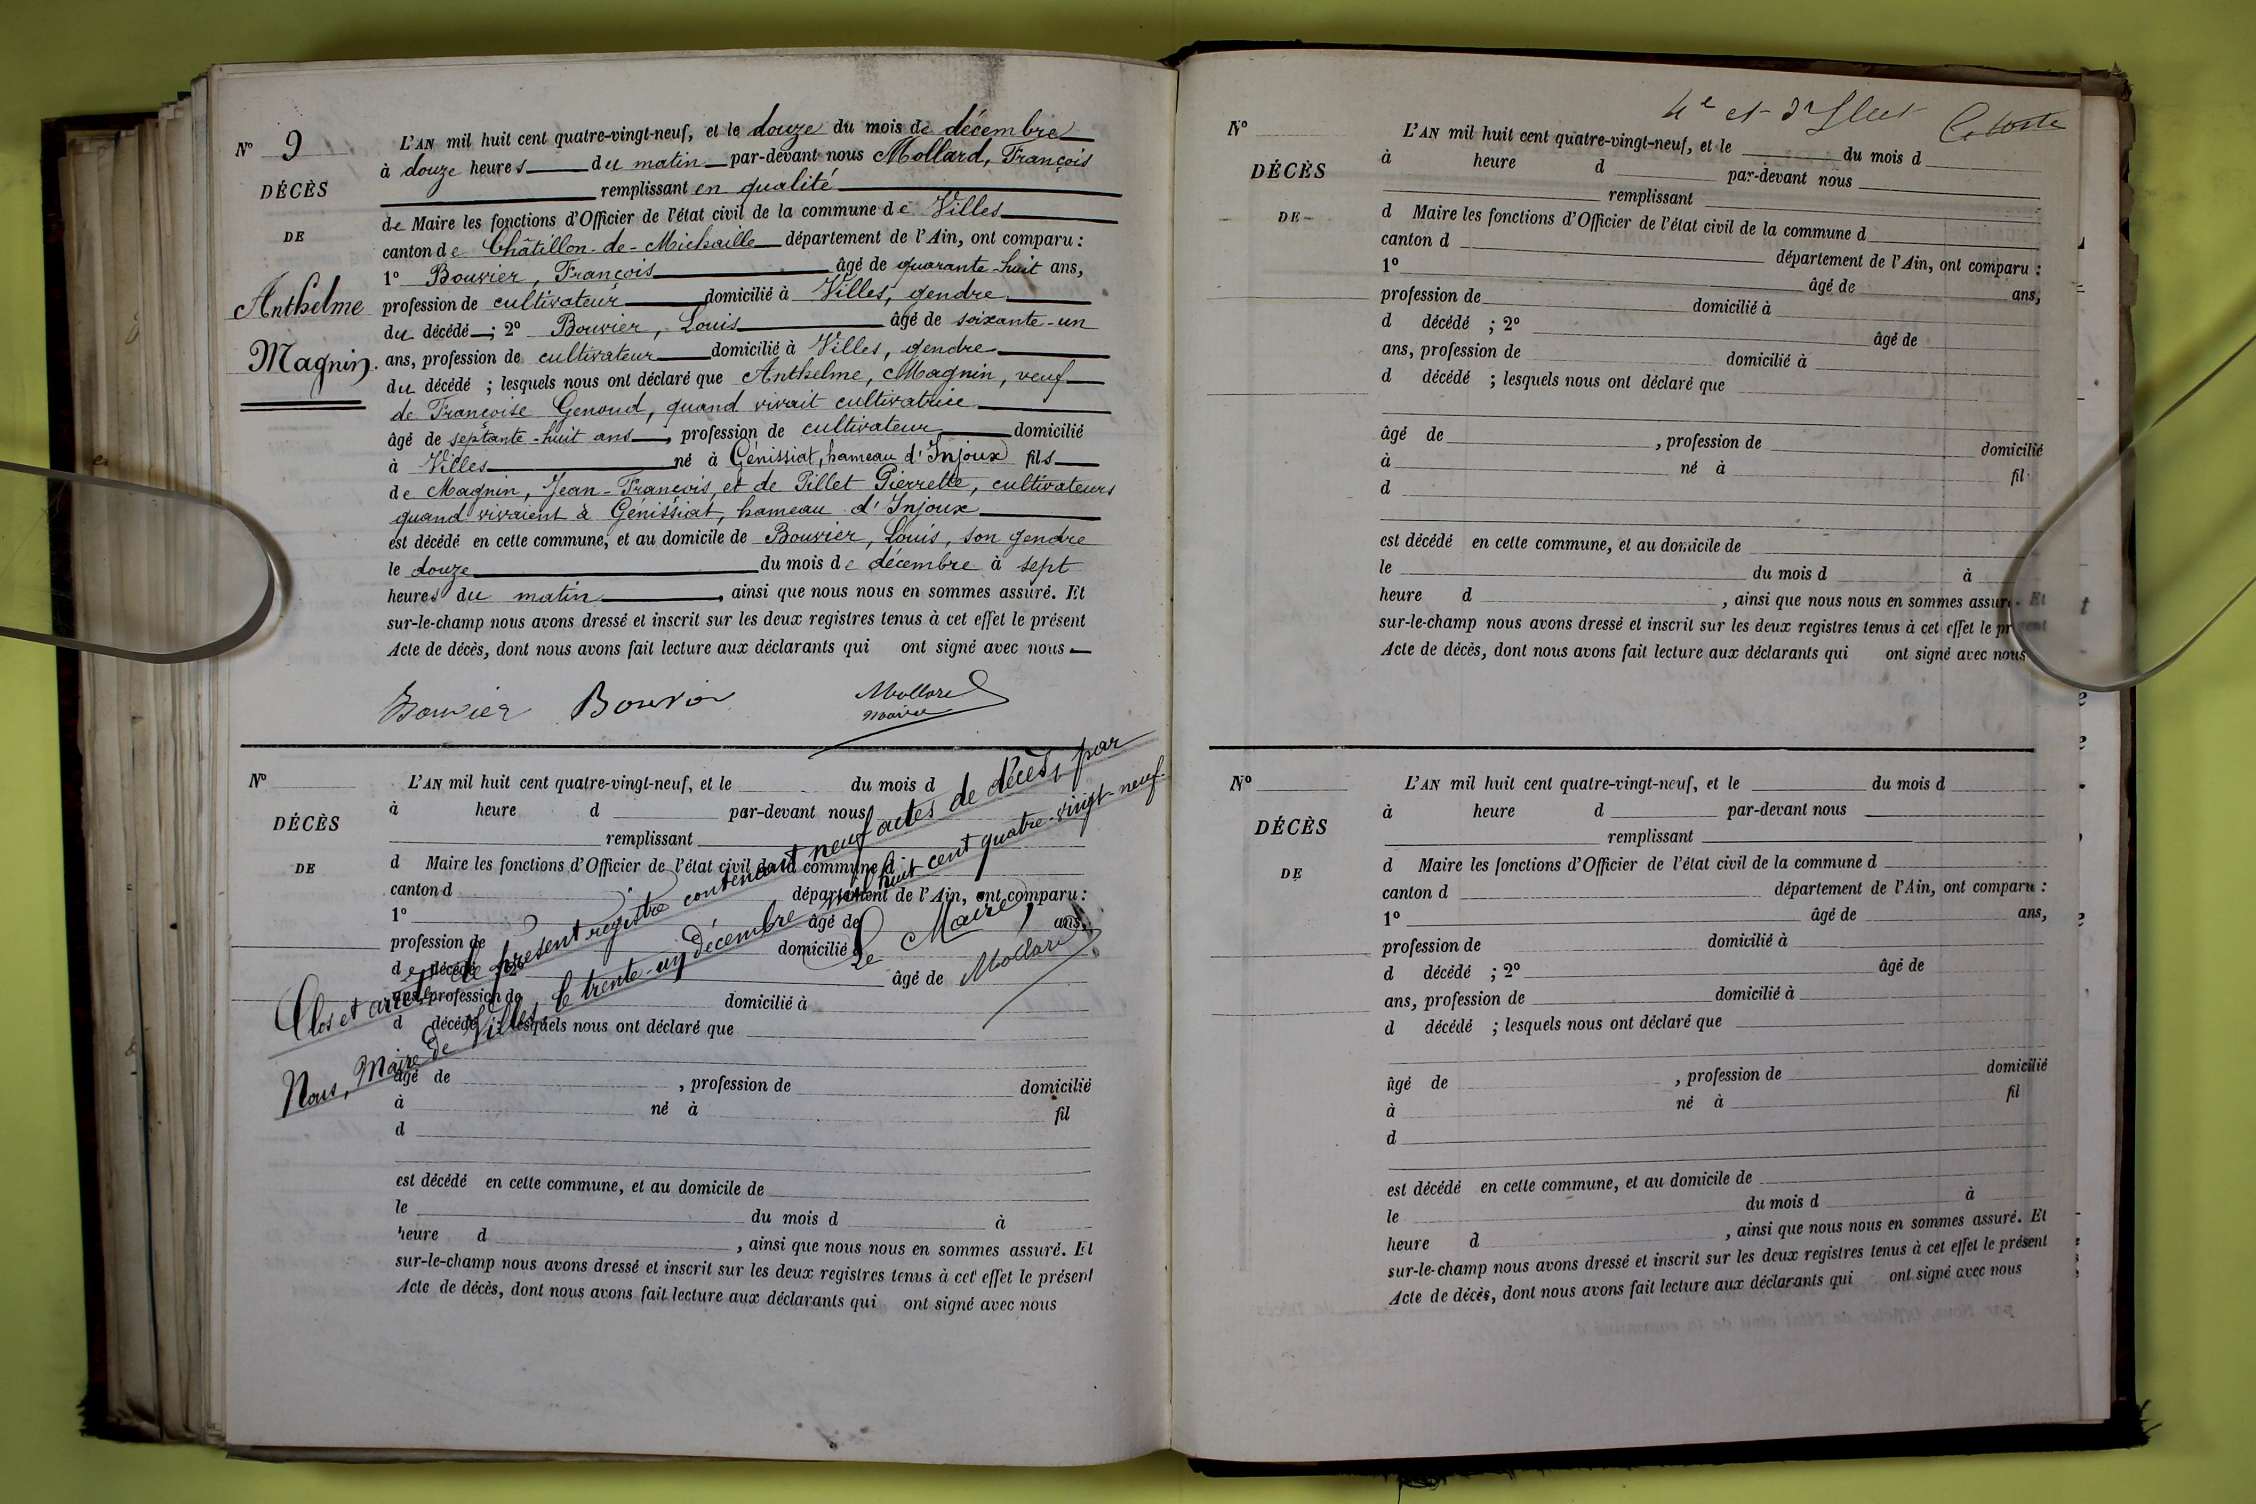 N° 9
DÉCÈS
DE
Anthelme
Magnin.
L'AN mil huit cent quatre-vingt-neuf, et le douze du mois de décembre
à douze heures du matin par-devant nous Mollard, François
remplissant en qualité
de Maire les fonctions d'Officier de l'état civil de la commune de Villes
canton de Châtillon-de-Michaille département de l'Ain, ont comparu :
1° Bouvier, François âgé de quarante-huit ans,
profession de cultivateur domicilié à Villes, gendre
du décédé ; 2° Bouvier, Louis âgé de soixante-un
ans, profession de cultivateur domicilié à Villes, gendre
du décédé ; lesquels nous ont déclaré que Anthelme, Magnin, veuf
de Françoise Genoud, quand vivait cultivatrice
âgé de septante-huit ans, profession de cultivateur domicilié
à Villes né à Génissiat, hameau d'Injoux fils
de Magnin, Jean-François, et de Pillet Pierrette, cultivateurs
quand vivaient à Génissiat, hameau d'Injoux
est décédé en cette commune, et au domicile de Bouvier, Louis, son gendre
le douze du mois de décembre à sept
heures du matin, ainsi que nous nous en sommes assuré. Et
sur-le-champ nous avons dressé et inscrit sur les deux registres tenus à cet effet le présent
Acte de décès, dont nous avons fait lecture aux déclarants qui ont signé avec nous
Bouvier Bouvier Mollard
maire
N°
DÉCÈS
DE
L'AN mil huit cent quatre-vingt-neuf, et le du mois d
à heure d par-devant nous
remplissant
d Maire les fonctions d'Officier de l'état civil de la commune d
canton d département de l'Ain, ont comparu :
1° âgé de ans,
profession de domicilié à
d décédé ; 2° âgé de
ans, profession de domicilié à
d décédé ; lesquels nous ont déclaré que
âgé de , profession de domicilié
à né à fil
d
est décédé en cette commune, et au domicile de
le du mois d à
heure d , ainsi que nous nous en sommes assuré. Et
sur-le-champ nous avons dressé et inscrit sur les deux registres tenus à cet effet le présent
Acte de décès, dont nous avons fait lecture aux déclarants qui ont signé avec nous
Clos et arrêté le présent registre contenant neuf actes de décès, par
Nous, Maire de Villes, le trente-un décembre mil huit cent quatre-vingt-neuf.
Le Maire,
Mollard
4e et
N°
DÉCÈS
DE
L'AN mil huit cent quatre-vingt-neuf, et le du mois d
à heure d par-devant nous
remplissant
d Maire les fonctions d'Officier de l'état civil de la commune d
canton d département de l'Ain, ont comparu :
1° âgé de ans,
profession de domicilié à
d décédé ; 2° âgé de
ans, profession de domicilié à
d décédé ; lesquels nous ont déclaré que
âgé de , profession de domicilié
à né à fil
d
est décédé en cette commune, et au domicile de
le du mois d à
heure d , ainsi que nous nous en sommes assuré. Et
sur-le-champ nous avons dressé et inscrit sur les deux registres tenus à cet effet le présent
Acte de décès, dont nous avons fait lecture aux déclarants qui ont signé avec nous
N°
DÉCÈS
DE
L'AN mil huit cent quatre-vingt-neuf, et le du mois d
à heure d par-devant nous
remplissant
d Maire les fonctions d'Officier de l'état civil de la commune d
canton d département de l'Ain, ont comparu :
1° âgé de ans,
profession de domicilié à
d décédé ; 2° âgé de
ans, profession de domicilié à
d décédé ; lesquels nous ont déclaré que
âgé de , profession de domicilié
à né à fil
d
est décédé en cette commune, et au domicile de
le du mois d à
heure d , ainsi que nous nous en sommes assuré. Et
sur-le-champ nous avons dressé et inscrit sur les deux registres tenus à cet effet le présent
Acte de décès, dont nous avons fait lecture aux déclarants qui ont signé avec nous